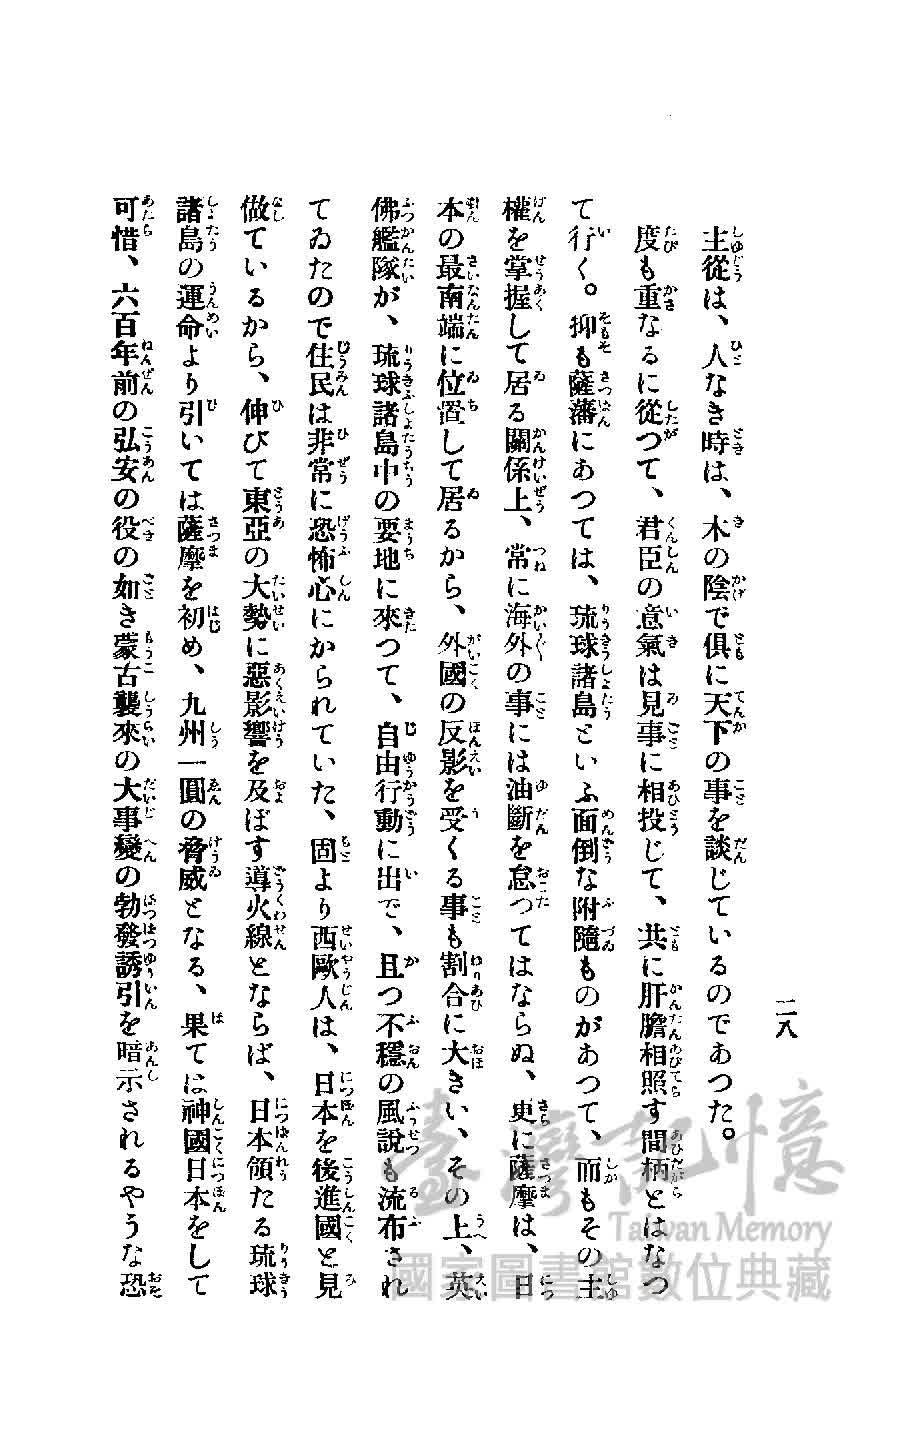 二八
主從は、人なき時は、木の陰で俱に天下の事を談じているのであつた。
度も重なるに從つて、君臣の意氣は見事に相投じて、共に肝膽相照す間柄とはなつ
て行く。抑も薩藩にあつては、琉球諸島といふ面倒な附隨ものがあつて、而もその主
權を掌握して居る關係上、常に海外の事には油斷を怠つてはならぬ、更に薩摩は、日
本の最南端に位置して居るから、外國の反影を受くる事も割合に大きい、その上、英
佛艦隊が、琉球諸島中の要地に來つて、自由行動に出で、且つ不穩の風說も流布され
てゐたので住民は非常に恐怖心にかられていた、固より西歐人は、日本を後進國と見
做ているから、伸びて東亞の大勢に惡影響を及ぼす導火線とならば、日本領たる琉球
諸島の運命より引いては薩摩を初め、九州一圓の脅威となる、果ては神國日本をして
可惜、六百年前の弘安の役の如き蒙古襲來の大事變の勃發誘引を暗示されるやうな恐
臺灣記憶
Taiwan Memory
國家圖書館數位典藏